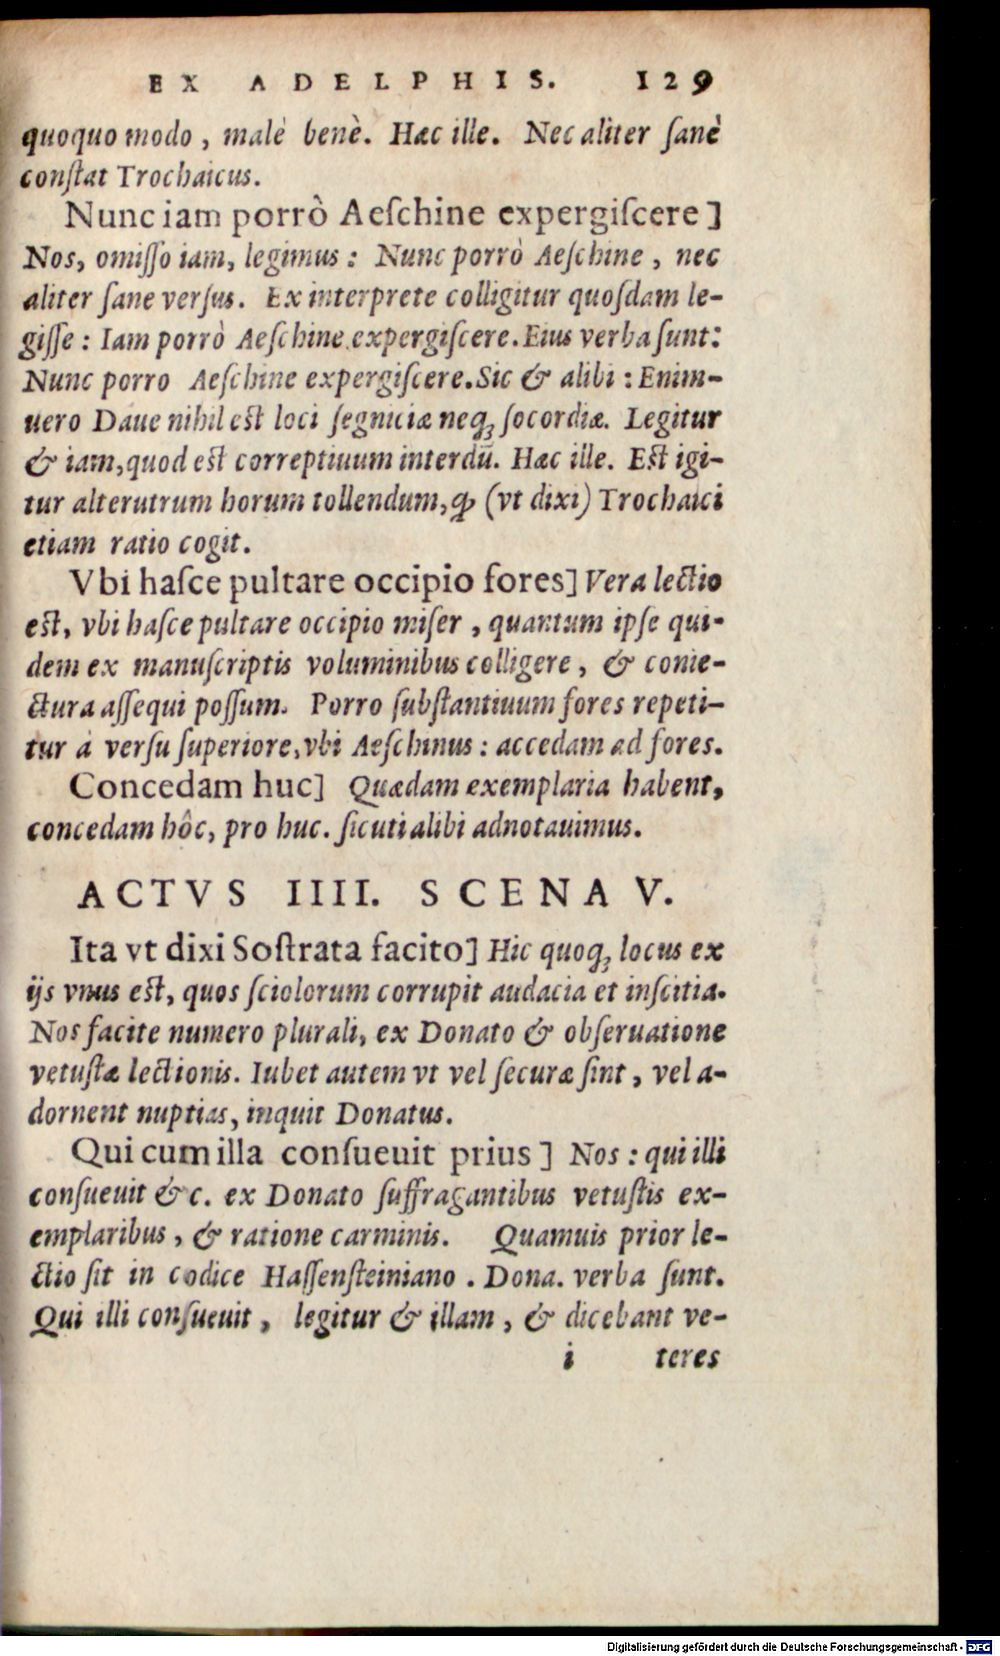 EX ADELPHIS. 129
quoquo modo, malè benè. Hæc ille. Nec aliter ſanè
conſtat Trochaicus.
Nunc iam porrò Aeſchine expergiſcere]
Nos, omiſſo iam, legimus: Nunc porrò Aeſchine, nec
aliter ſane verſus. Ex interprete colligitur quoſdam le-
giſſe: Iam porrò Aeſchine expergiſcere. Eius verba ſunt:
Nunc porro Aeſchine expergiſcere. Sic & alibi: Enim-
uero Daue nihil eſt loci ſegniciæ neqꝫ ſocordiæ. Legitur
& iam, quod eſt correptiuum interdū. Hæc ille. Eſt igi-
tur alterutrum horum tollendum, ꝙ (vt dixi) Trochaici
etiam ratio cogit.
Vbi haſce pultare occipio fores] Vera lectio
eſt, vbi haſce pultare occipio miſer, quantum ipſe qui-
dem ex manuſcriptis voluminibus colligere, & conie-
ctura aſſequi poſſum. Porro ſubſtantiuum fores repeti-
tur à verſu ſuperiore, vbi Aeſchinus: accedam ad fores.
Concedam huc] Quædam exemplaria habent,
concedam hôc, pro huc. ſicuti alibi adnotauimus.
ACTVS IIII. SCENA V.
Ita vt dixi Soſtrata facito] Hic quoqꝫ locus ex
ijs vnus eſt, quos ſciolorum corrupit audacia et inſcitia.
Nos facite numero plurali, ex Donato & obſeruatione
vetuſtæ lectionis. Iubet autem vt vel ſecuræ ſint, vel a-
dornent nuptias, inquit Donatus.
Qui cum illa conſueuit prius] Nos: qui illi
conſueuit &c. ex Donato ſuffragantibus vetuſtis ex-
emplaribus, & ratione carminis. Quamuis prior le-
ctio ſit in codice Haſſenſteiniano. Dona. verba ſunt.
Qui illi conſueuit, legitur & illam, & dicebant ve-
i teres
Digitalisierung gefördert durch die Deutsche Forschungsgemeinschaft - DFG